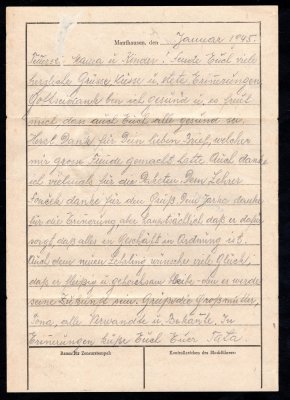 Mauthausen, den Januar 1945.
Mama u Kinder. Sende Euch viele
herzliche Grüsse Küsse u. stete Erinnerungen
Gottseidank bin ich gesund u. es freut
mich das auch Euch alle gesund sei.
Herzl Dank für Dein lieben Brief, welcher
mir grosse Freude gemacht hatte Auch danke
ich vielmals für die Paketen. Dem Lehrer
danke für den Gruß. danke
für die Erinnerung, aber hauptsächlich daß er dafür
sorgt, daß alles in Geschäft in Ordnung ist.
Auch dem neuen Lehrling wünsche viel Glück,
daß er fleißig u gehorchsam bleibe, den er werde
seine Zukund sein. Grüße die Großmutter,
alle Verwandte u Bekante. In
Erinnerungen küße Euch Euer Tata.
Raum für Zensurstempel: Kontrollzeichen des Blockführers: